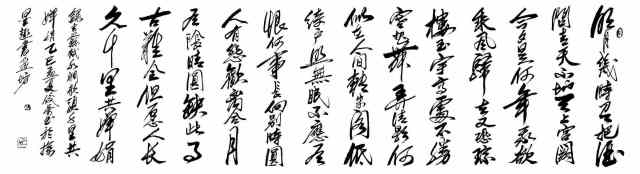 明月幾時有把酒
問青天不知天上宮闕
今夕是何年我欲
乘風歸去又恐瓊
樓玉宇高處不勝
寒起舞弄清影何
似在人間轉朱閣低
綺戶照無眠不應有
恨何事長向別時圓
人有悲歡離合月
有陰晴圓缺此事
古難全但願人長
久千里共嬋娟
千里共
嬋娟乙巳